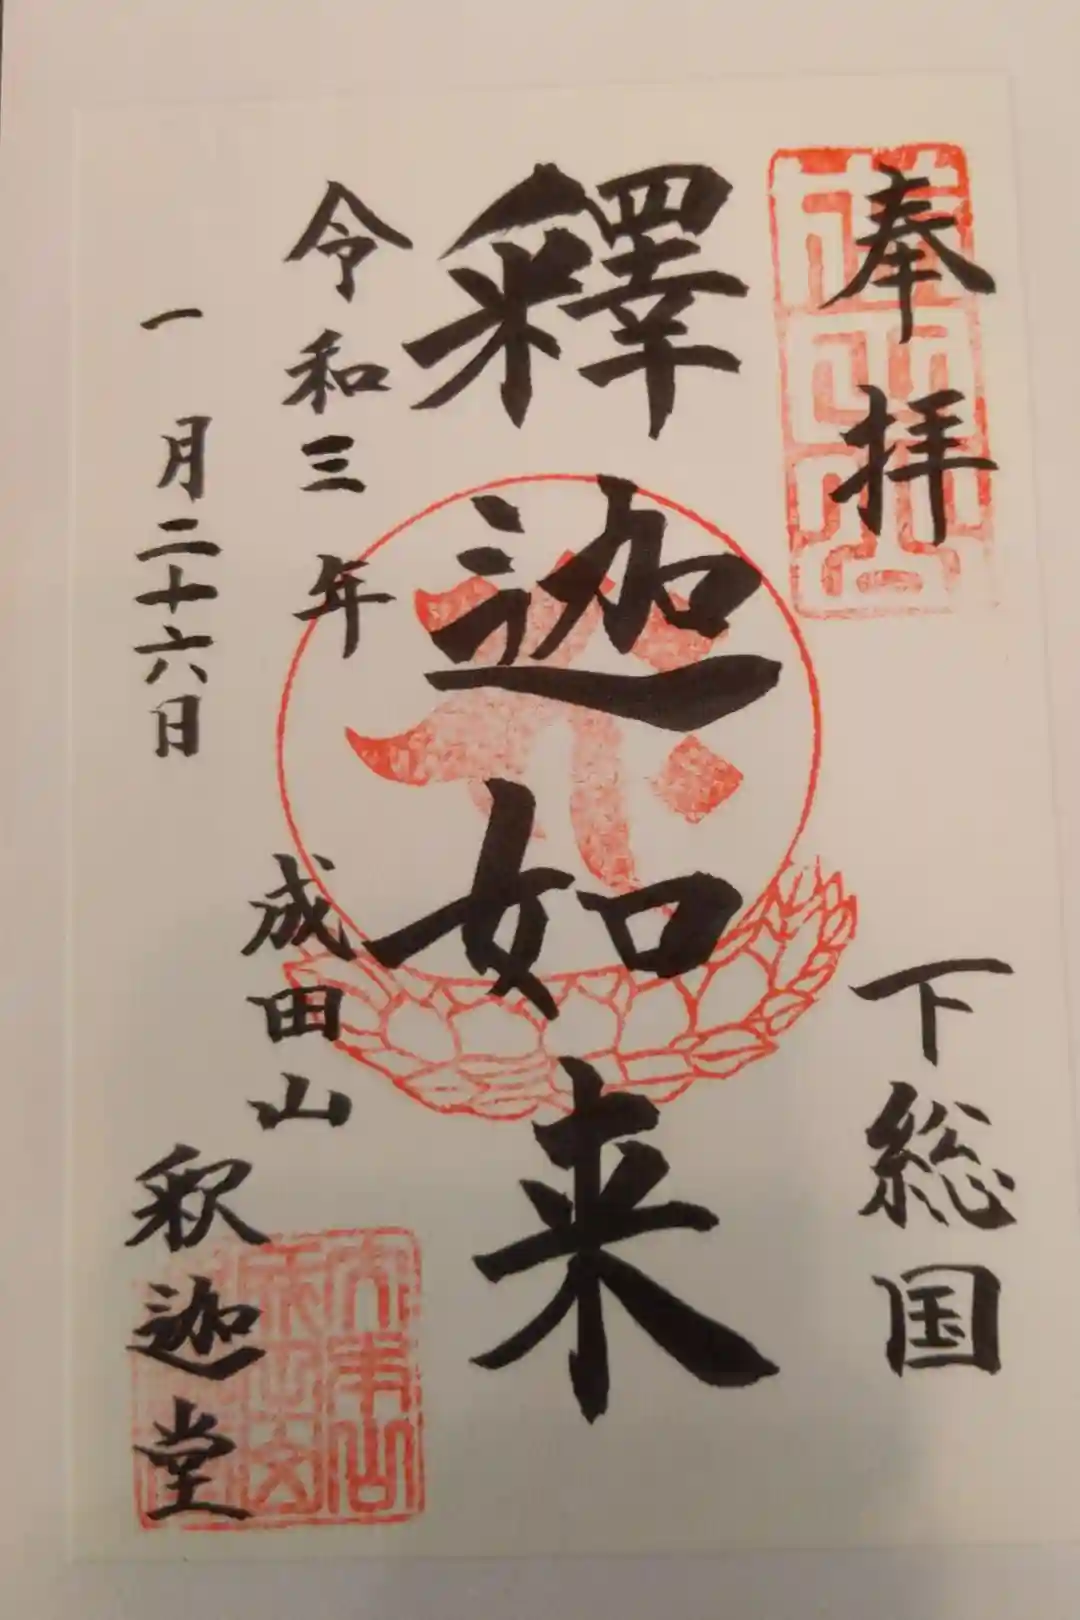 奉拝
下総国
釋迦如来
令和三年
一月二十六日
成田山
釈迦堂